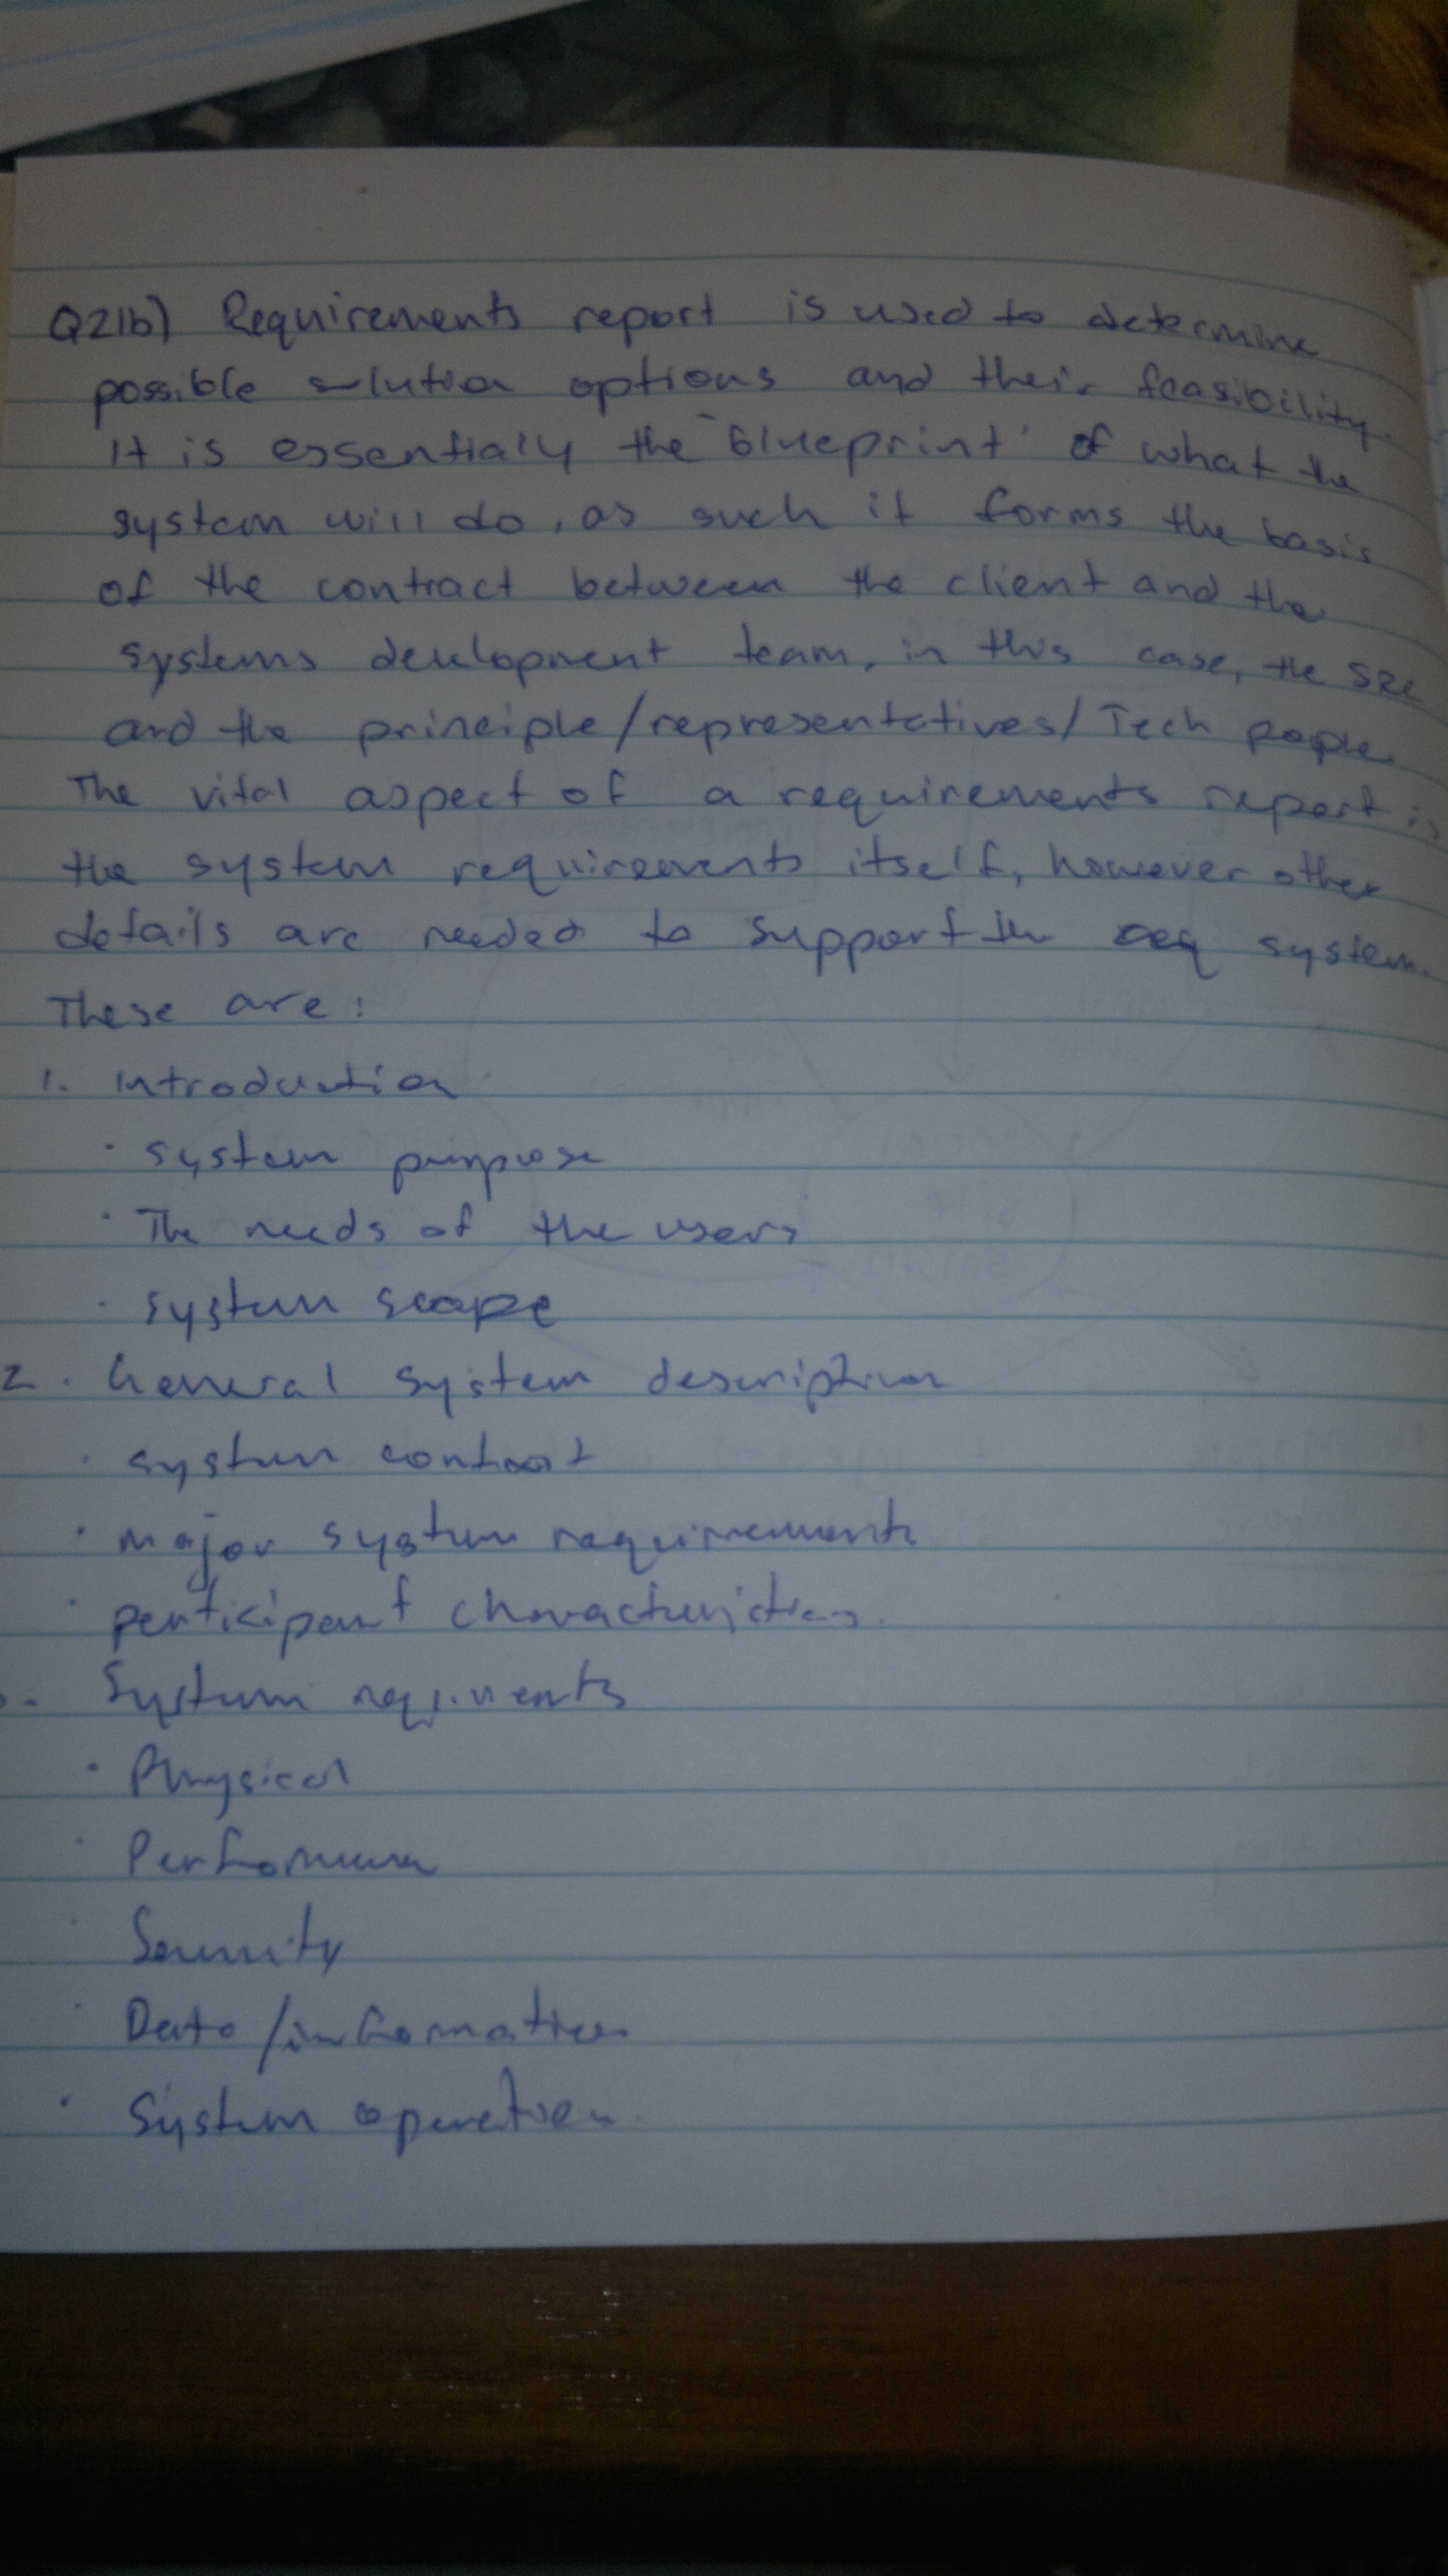 Q21b) Requirements report is used to determine
possible solution options and their feasibility.
It is essentialy the "blueprint" of what the
system will do, as such it forms the basis
of the contract between the client and the
systems development team, in this case, the SRC
and the principle/representatives/Tech people.
The vital aspect of a requirements report is
the system requirements itself, however other
details are needed to support the system.
These are:
1. Introduction
· System purpose
· The needs of the users
· System scope
2. General system description
· system
· major system requirements
· participant characteristics.
System
· Physical
· Performance
· Security
· Data/information
· System operation.